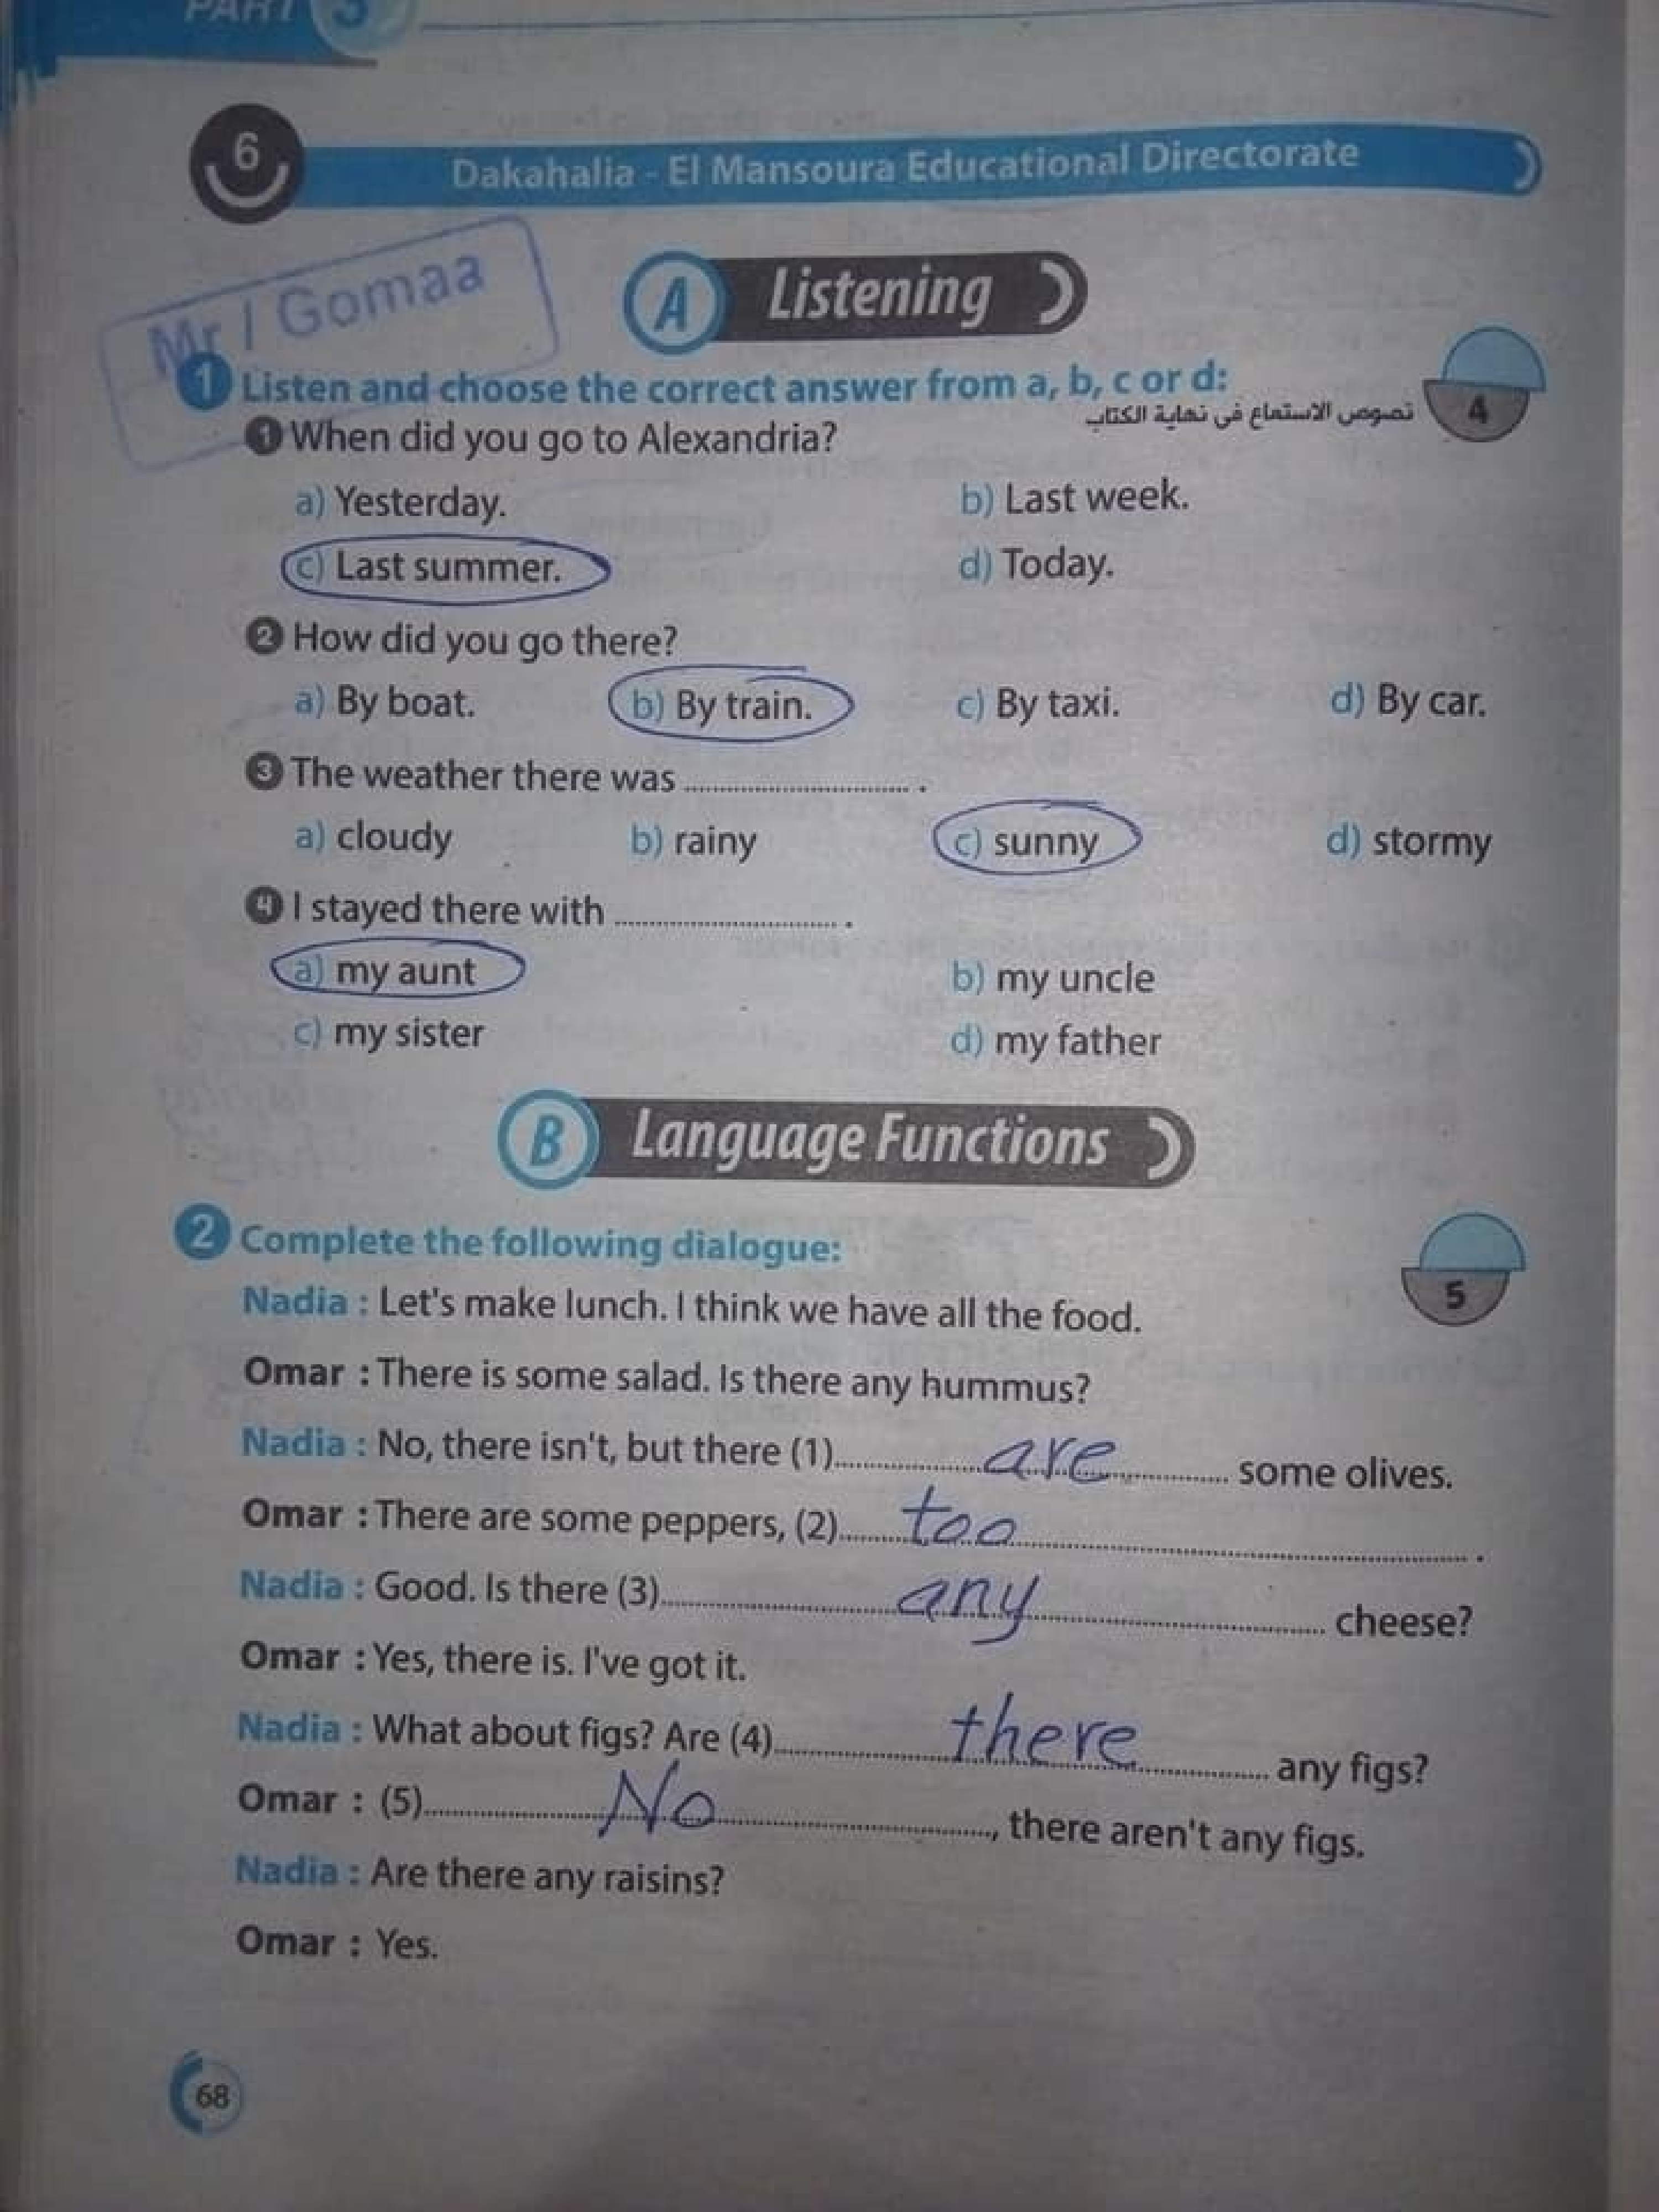 PART 3
6
Dakahalia - El Mansoura Educational Directorate
Mr / Gomaa
A Listening
1 Listen and choose the correct answer from a, b, c or d:
نصوص الاستماع فى نهاية الكتاب
4
1 When did you go to Alexandria?
a) Yesterday. b) Last week.
c) Last summer. d) Today.
2 How did you go there?
a) By boat. b) By train. c) By taxi. d) By car.
3 The weather there was ............................ .
a) cloudy b) rainy c) sunny d) stormy
4 I stayed there with ............................ .
a) my aunt b) my uncle
c) my sister d) my father
B Language Functions
2 Complete the following dialogue:
5
Nadia : Let's make lunch. I think we have all the food.
Omar : There is some salad. Is there any hummus?
Nadia : No, there isn't, but there (1)........are........ some olives.
Omar : There are some peppers, (2)........too........ .
Nadia : Good. Is there (3)........any........ cheese?
Omar : Yes, there is. I've got it.
Nadia : What about figs? Are (4)........there........ any figs?
Omar : (5)........No........, there aren't any figs.
Nadia : Are there any raisins?
Omar : Yes.
68